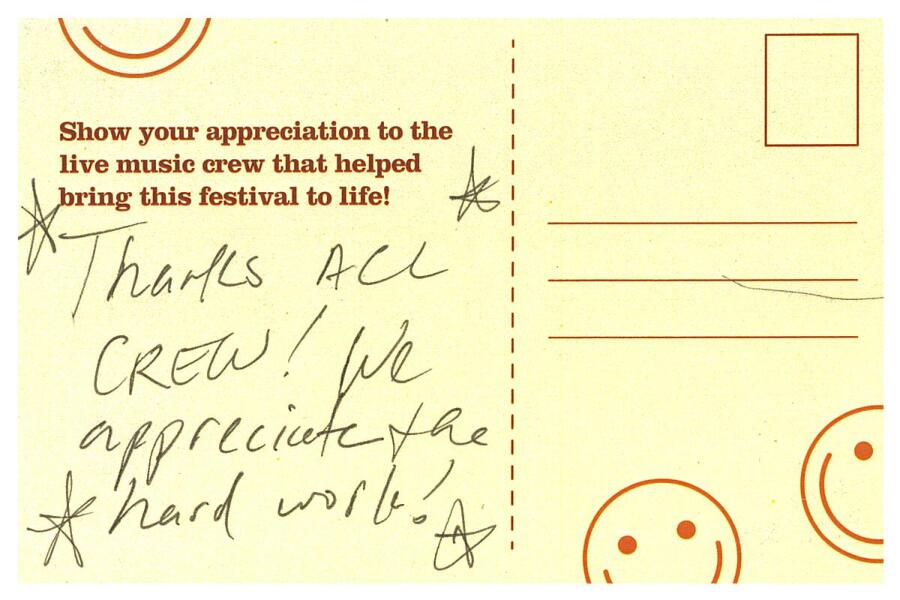 Show your appreciation to the
live music crew that helped
bring this festival to life!
Thanks ACL
CREW! We
appreciate the
hard work!